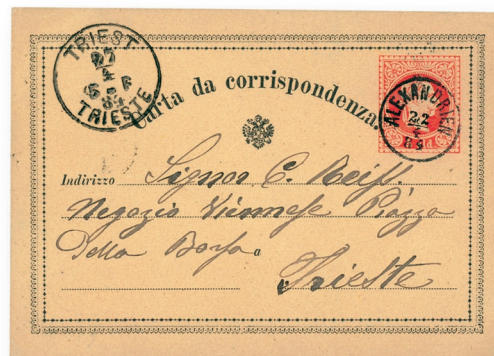 TRIEST
27
4
84
TRIESTE
Carta da corrispondenza.
ALEXANDRIEN
22
84
Indirizzo Signor C. Reiss.
Negozio Viennese Piazza
Della Borsa a
Trieste